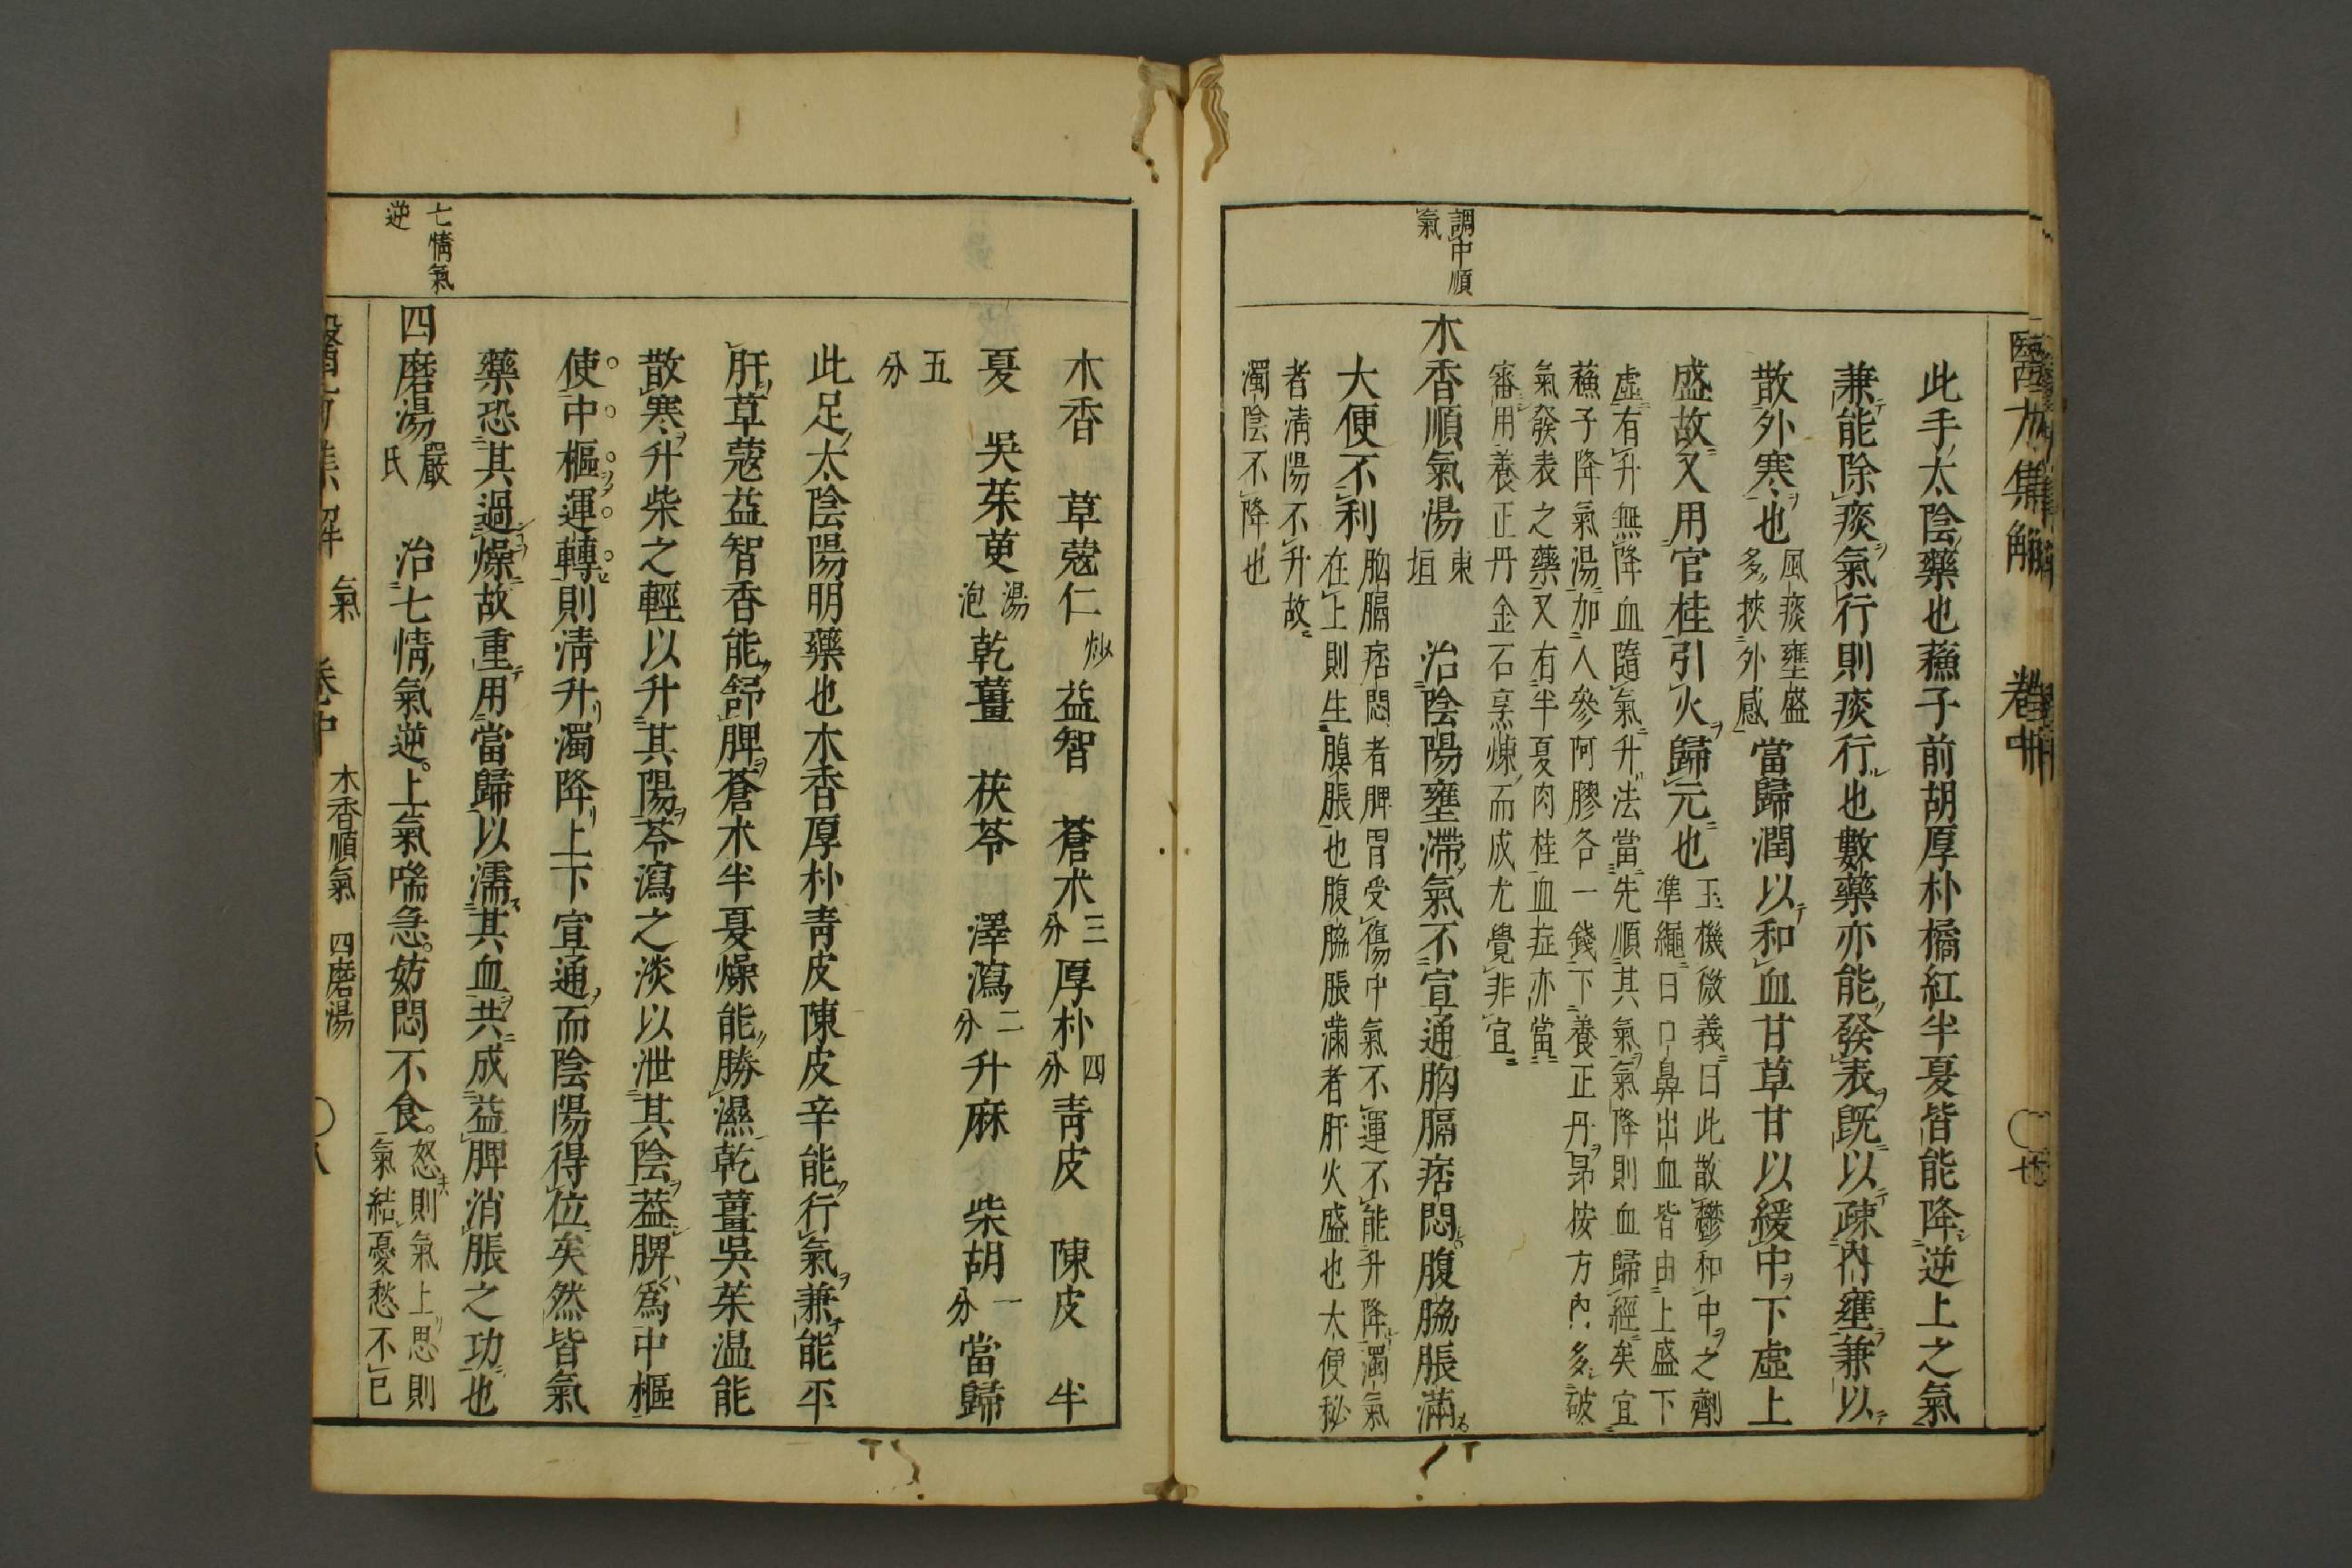 醫方集解
卷中
調中順
氣
此手太陰藥也蘇子前胡厚朴橘紅半夏皆能降逆上之氣
兼能除痰氣行則痰行也數藥亦能發表既以疎內壅兼以
散外寒也風痰壅盛多挾外感當歸潤以和血甘草甘以緩中下虛上
盛故又用官桂引火歸元也玉機微義曰此散鬱和中之劑準繩曰口鼻出血皆由上盛下
虛有升無降血隨氣升法當先順其氣氣降則血歸經矣宜
蘇子降氣湯加人參阿膠各一錢下養正丹昴按方內多破
氣發表之藥又有半夏肉桂血症亦當
審用養正丹金石烹煉而成尤覺非宜
木香順氣湯東垣 治陰陽壅滯氣不宣通胸膈痞悶腹脇脹滿
大便不利胸膈痞悶者脾胃受傷中氣不運不能升降濁氣在上則生䐜脹也腹脇脹滿者肝火盛也大便秘
者淸陽不升故
濁陰不降也
木香 草蔲仁炒益智 蒼朮三分厚朴四分青皮 陳皮 半
夏 吳茱萸湯泡乾薑 茯苓 澤瀉二分升麻 柴胡一分當歸
五分
此足太陰陽明藥也木香厚朴青皮陳皮辛能行氣兼能平
肝草蔲益智香能舒脾蒼朮半夏燥能勝濕乾薑吳茱温能
散寒升柴之輕以升其陽苓瀉之淡以泄其陰蓋脾爲中樞
使中樞運轉則淸升濁降上下宣通而陰陽得位矣然皆氣
藥恐其過燥故重用當歸以濡其血共成益脾消脹之功也
七情氣
逆
四磨湯嚴氏 治七情氣逆上氣喘急妨悶不食怒則氣上思則氣結憂愁不已
氣 卷中 木香順氣 四磨湯